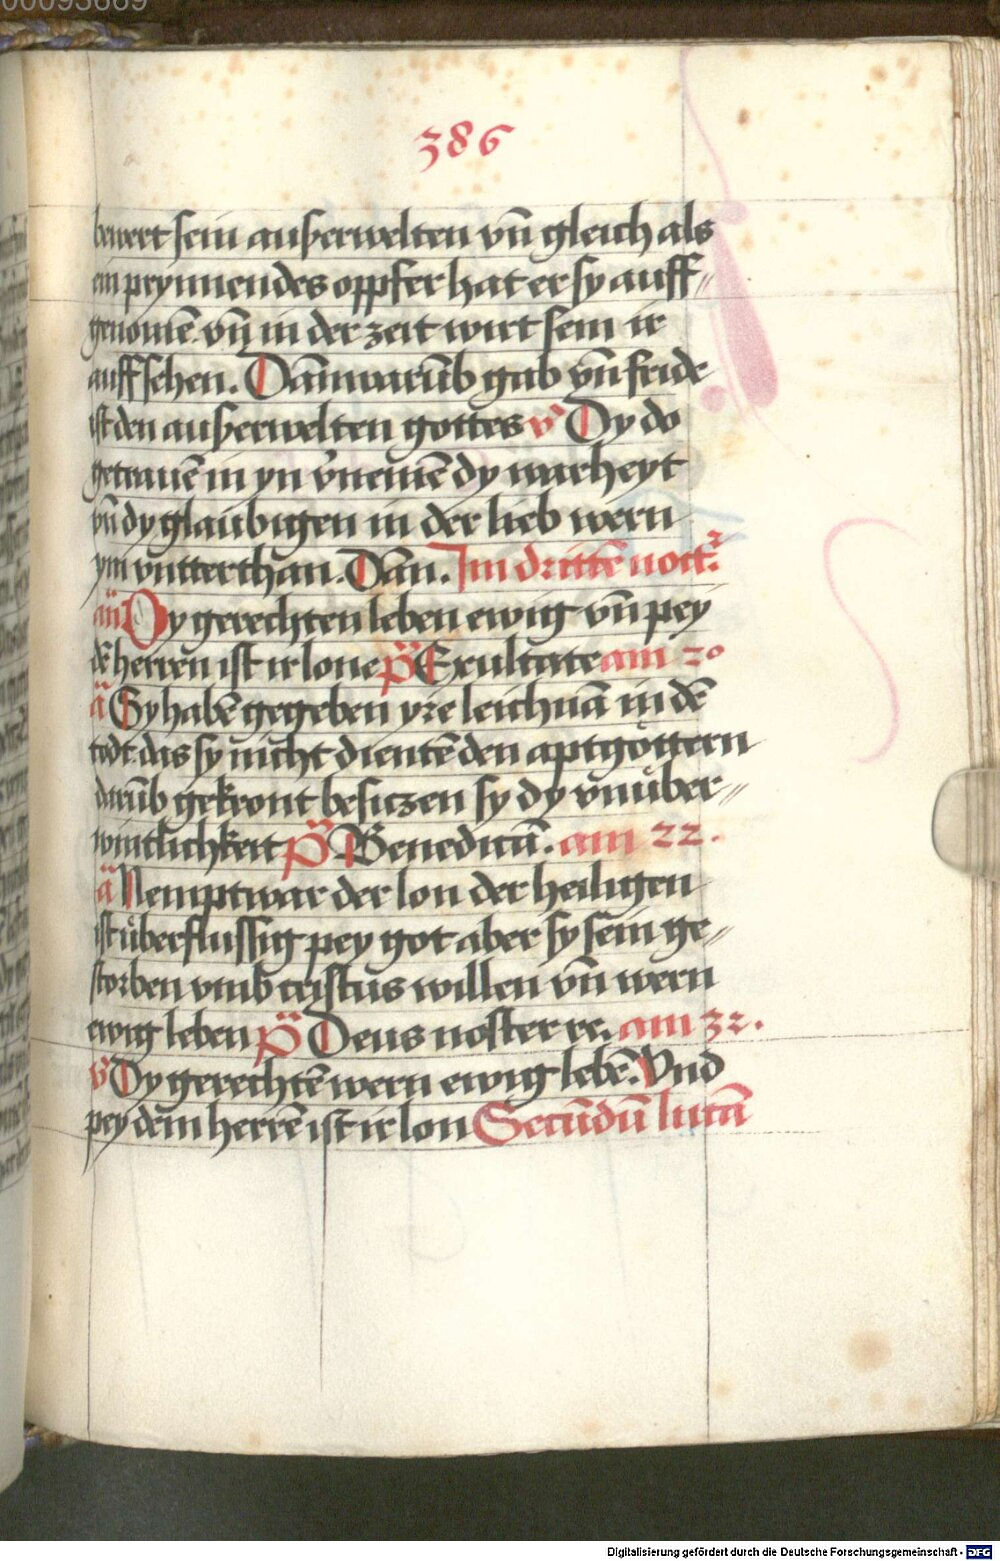 00093669
386
bewert sein auserwelten vn̄ gleich als
ein prynnendes oppfer hat er sy auff〃
genomē. vn̄ in der zeit wirt sein ir
auffsehen. Dann warūb gab vn̄ fride
ist den auserwelten gottes v̉ Dy do
getrauē in yn v̉nemē dy warheyt
vn̄ dy glaubigen in der lieb wern
ym vntterthan. Dan̄. Im drittē noctꝛ
an̄ Dy gerechten leben ewig vn̄ pey
dē herren ist ir lone p̄s Exultate am 20
ā Sy habē gegeben yre leichnā in dē
todt. das sy nicht dientē den aptgöttern
darūb gekront besiczen sy dy vnüber〃
wintlichkeit p̄s Benedicā. am 22.
ā Nempt war der lon der heiligen
ist überflussig pey got aber sy sein ge〃
storben vmb cristus willen vn̄ wern
ewig leben p̄s Deus noster re. am 32.
v̉ Dy gerechtē wern ewig lebē. Vnd
pey dem herrē ist ir lon Secūdū lucā
Digitalisierung gefördert durch die Deutsche Forschungsgemeinschaft - DFG